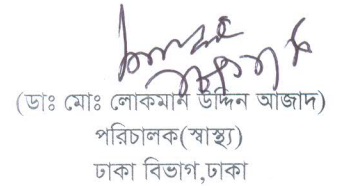 (ডাঃ মোঃ লোকমান উদ্দিন আজাদ)
পরিচালক(স্বাস্থ্য)
ঢাকা বিভাগ,ঢাকা